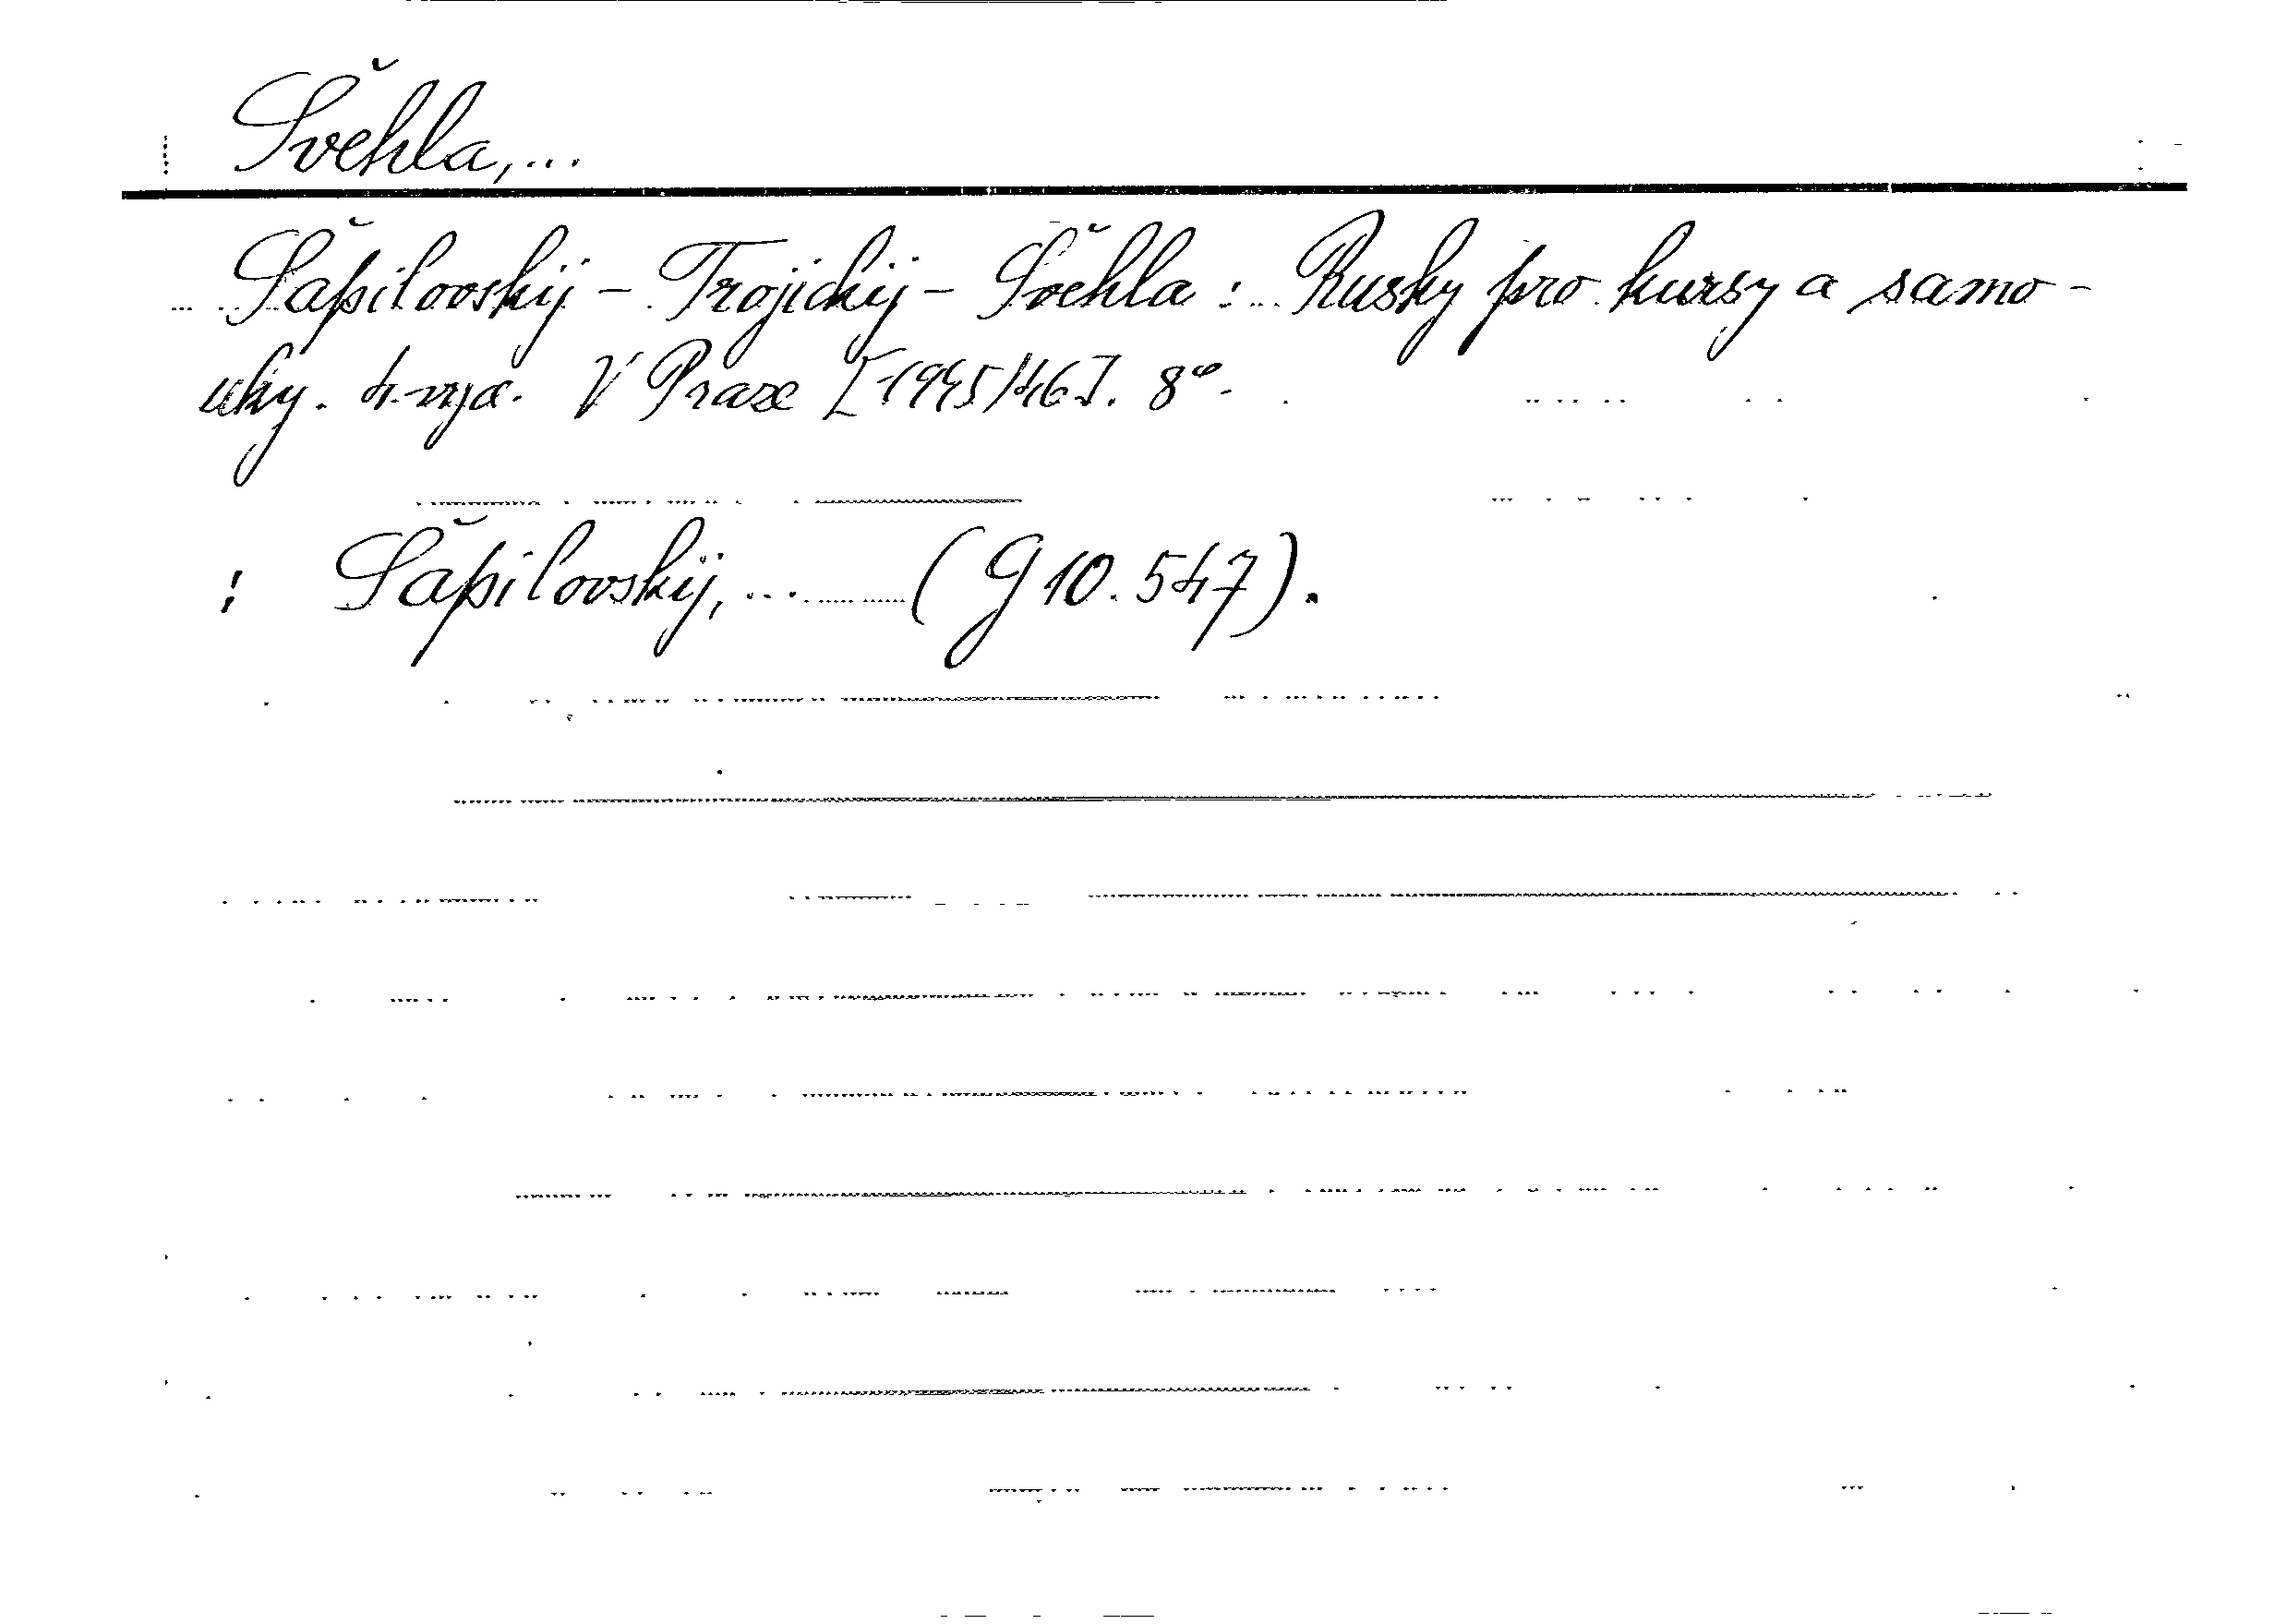 Švehla,...
Šapilovskij - Trojickij - Švehla: Rusky pro kursy a samo-
uky. 4. vyd. V Praze [1945/46]. 8°.
: Šapilovskij,... (G 10.547).